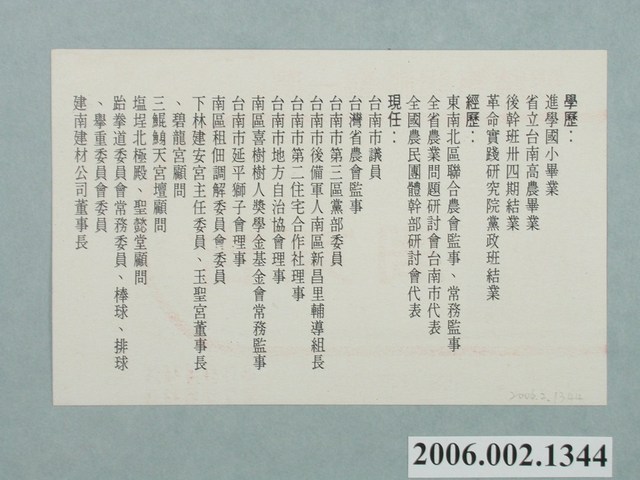 學歷：
進學國小畢業
省立台南高農畢業
後幹班卅四期結業
革命實踐研究院黨政班結業
經歷：
東南北區聯合農會監事、常務監事
全省農業問題研討會台南市代表
全國農民團體幹部研討會代表
現任：
台南市議員
台灣省農會監事
台南市第三區黨部委員
台南市後備軍人南區新昌里輔導組長
台南市第二住宅合作社理事
台南市地方自治協會理事
南區喜樹樹人獎學金基金會常務監事
台南市延平獅子會理事
南區租佃調解委員會委員
下林建安宮主任委員、玉聖宮董事長
、碧龍宮顧問
三鯤鯓天宮壇顧問
塩埕北極殿、聖懿堂顧問
跆拳道委員會常務委員、棒球、排球
、舉重委員會委員
建南建材公司董事長
2006.2.1344
2006.002.1344